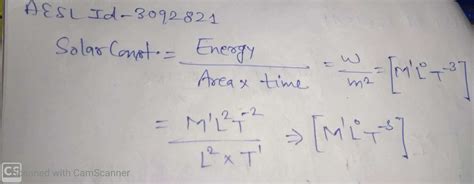 AESL Id-3092821
Solar Const. = Energy / Area x time = W / m² = [M¹L⁰T⁻³]
= M¹L²T⁻² / L² x T¹ ⇒ [M¹L⁰T⁻³]
CS Scanned with CamScanner